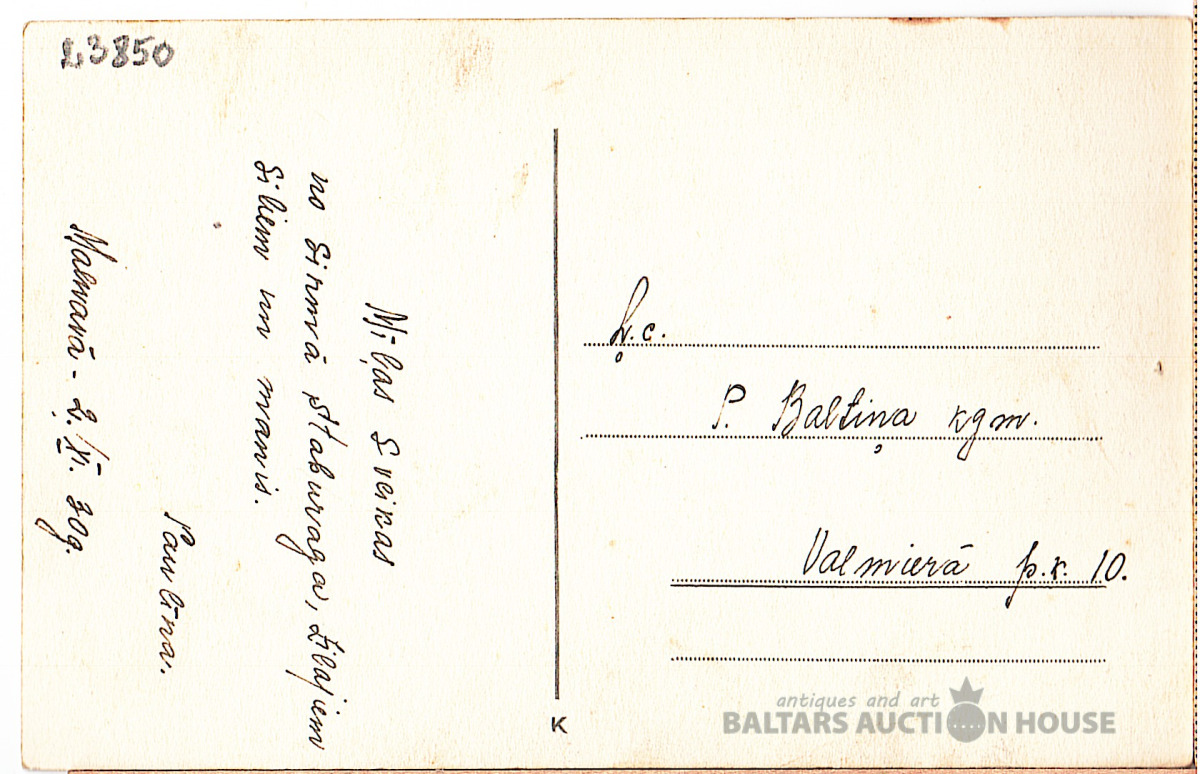 23850
Mīļas Sveikas
no Sirmā Staburaga, Zilajiem
Siliem un manis.
Paulīna.
Malnavā - 2. XI. 30g.
Ļ.c.
P. Baltiņa kgm.
Valmierā p.k. 10.
K
antiques and art
BALTARS AUCTION HOUSE